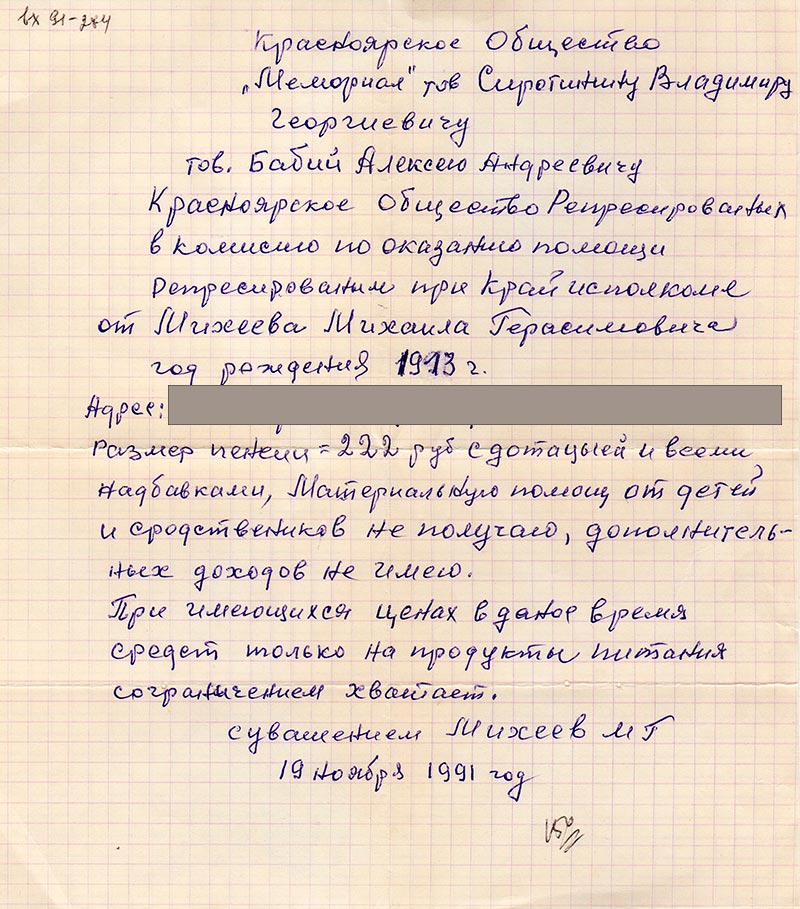 вх 91-284
Красноярское Общество
„Мемориал" тов Сиротинину Владимиру
Георгиевичу
тов. Бабий Алексею Андреевичу
Красноярское Общество Репресированых
в комисию по оказанию помощи
репресированым при Крайисполкоме
от Михеева Михаила Герасимовича
год рождения 1913 г.
Адрес:
размер пенсии = 222 руб с дотацыей и всеми
надбавками, Материальную помощ от детей
и сродствеников не получаю, дополнитель-
ных доходов не имею.
При имеющихся ценах в даное время
средст только на продукты питания
сограничением хватает.
сувашением Михеев М Г
19 ноября 1991 год